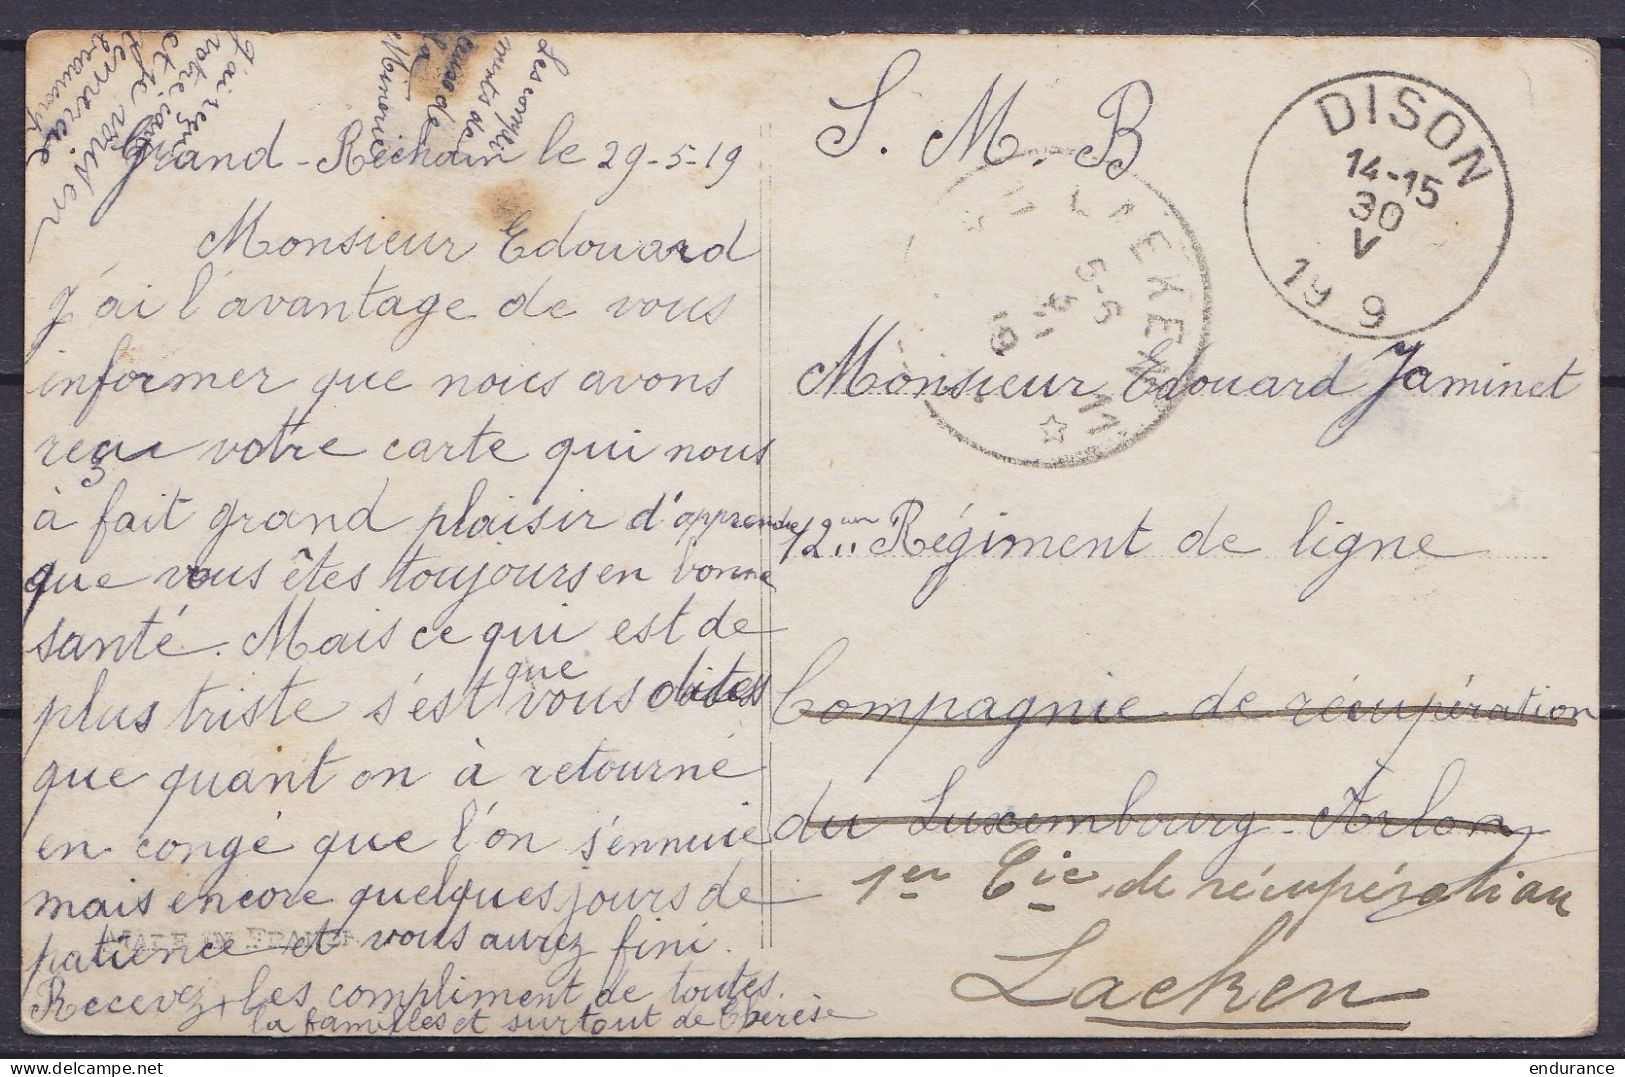 J'ai reçu
votre carte
et je vous en
remercie
Les compli
ments de
la
Grand-Rechain le 29-5-19
Monsieur Edouard
J'ai l'avantage de vous
informer que nous avons
reçu votre carte qui nous
à fait grand plaisir d'apprendre
que vous êtes toujours en bonne
santé. Mais ce qui est de
plus triste s'est que vous dites
que quant on à retourné
en congé que l'on s'ennuie
mais encore quelques jours de
patience et vous aurez fini.
MADE IN FRANCE
Recevez les compliment de toutes
la familles et surtout de Thérèse
S. M. B
DISON
14-15
30
V
19 9
LAEKEN
Monsieur Edouard Jaminet
12 Régiment de ligne
Compagnie de récupération
du Luxembourg-Arlon
1er Cie de récupération
Laeken
endurance